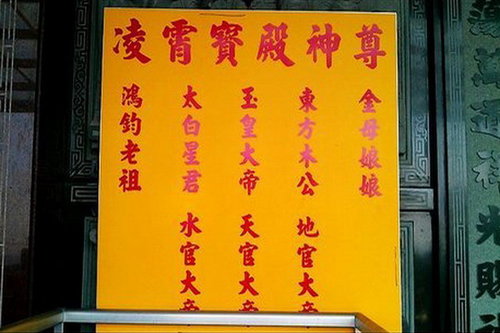 凌霄寶殿神尊
鴻鈞老祖
太白星君
水官大帝
玉皇大帝
天官大帝
東方木公
地官大帝
金母娘娘